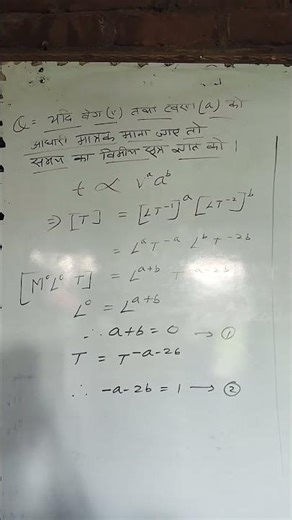 Q = यदि वेग (v) तथा त्वरण (a) को
आधारी मात्रक माना जाए तो
समय का विमीय सूत्र ज्ञात करो।
t ∝ vᵃ aᵇ
⇒ [T] = [LT⁻¹]ᵃ [LT⁻²]ᵇ
= Lᵃ T⁻ᵃ Lᵇ T⁻²ᵇ
[M⁰L⁰ T] = Lᵃ⁺ᵇ T⁻ᵃ⁻²ᵇ
L⁰ = Lᵃ⁺ᵇ
∴ a+b = 0 → ①
T = T⁻ᵃ⁻²ᵇ
∴ -a-2b = 1 → ②